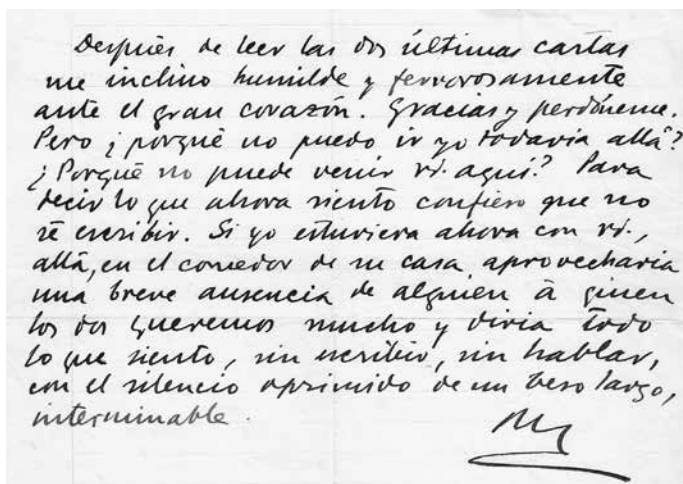 Después de leer las dos últimas cartas
me inclino humilde y fervorosamente
ante el gran corazón. Gracias y perdóneme.
Pero ¿porqué no puedo ir yo todavía allá?
¿Porqué no puede venir vd. aquí? Para
decir lo que ahora siento confieso que no
sé escribir. Si yo estuviera ahora con vd.,
allá, en el comedor de su casa, aprovecharía
una breve ausencia de alguien á quien
los dos queremos mucho y diría todo
lo que siento, sin escribir, sin hablar,
con el silencio oprimido de un beso largo,
interminable.